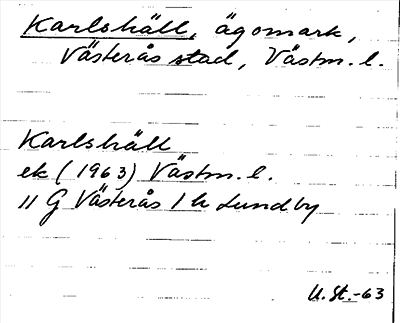 Karlshäll, ägomark,
Västerås stad, Västm. l.
Karlshäll
ek (1963) Västm. l.
11 G Västerås 1 h Lundby
U. St.-63